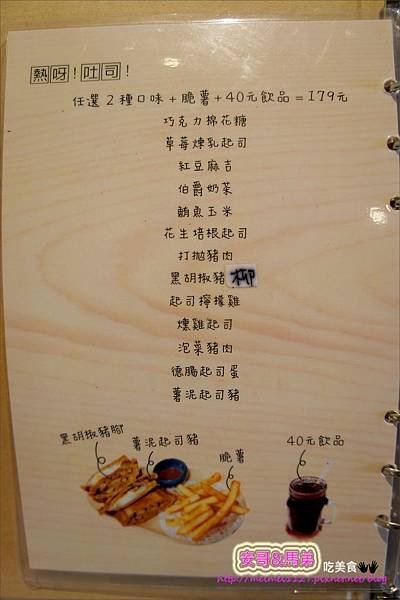 熱呀!吐司!
任選2種口味+脆薯+40元飲品=179元
巧克力棉花糖
草莓煉乳起司
紅豆麻吉
伯爵奶茶
鮪魚玉米
花生培根起司
打拋豬肉
黑胡椒豬柳
起司檸檬雞
燻雞起司
泡菜豬肉
德腸起司蛋
薯泥起司豬
黑胡椒豬腳
薯泥起司豬
脆薯
40元飲品
安哥&馬弟 吃美食
http://meimei1127.pixnet.net/blog